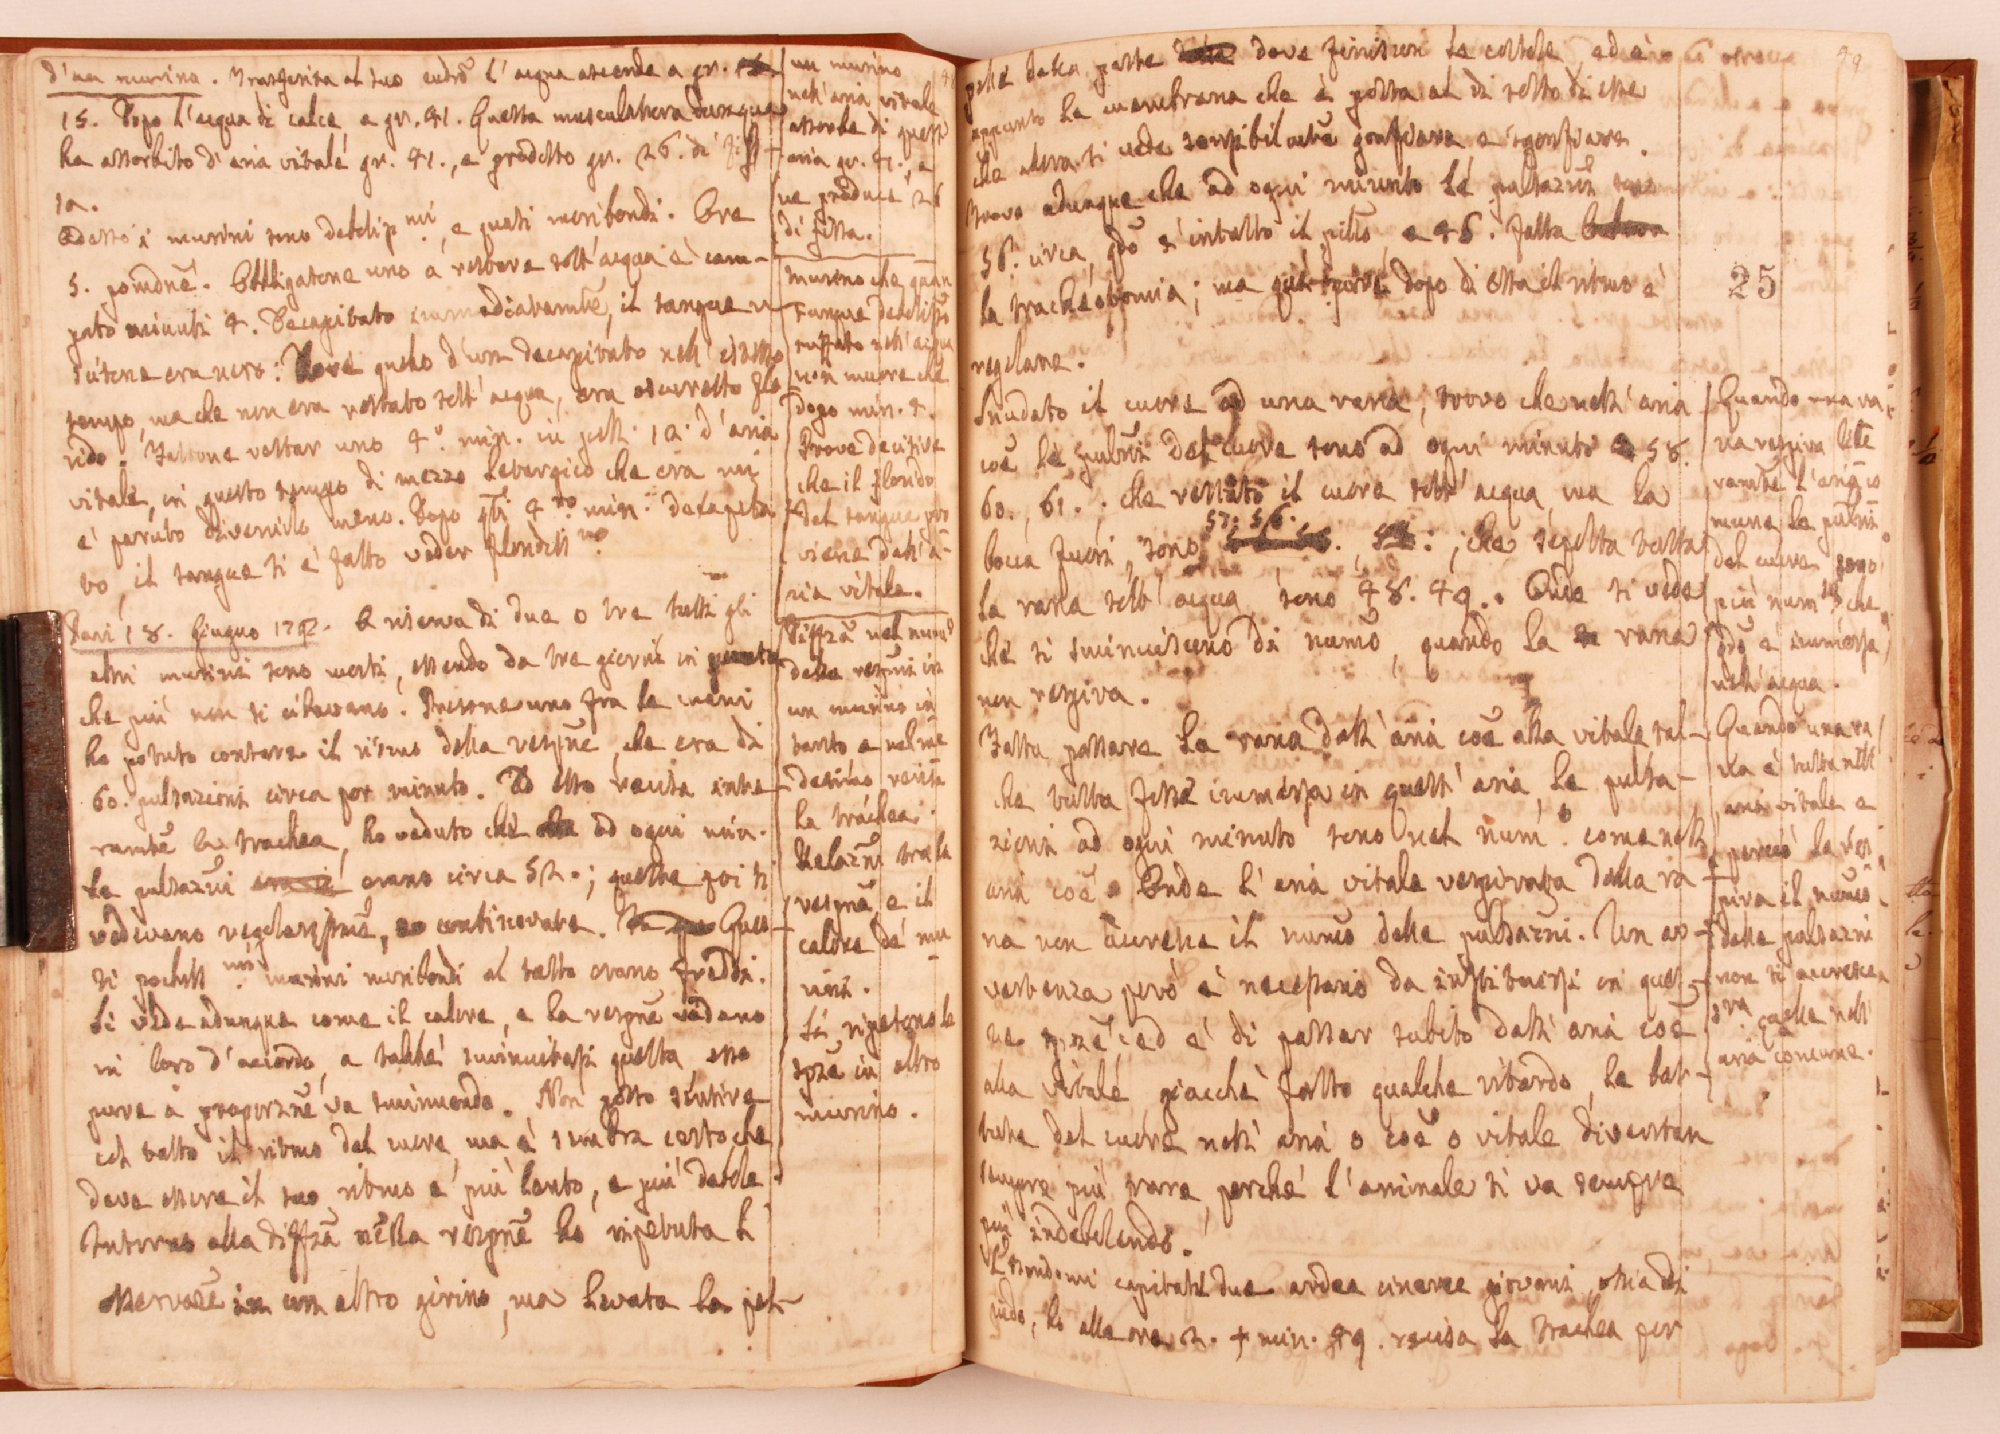 d'un murino. Trasferita al suo cubo l'acqua ascende a gr.
15. Dopo l'acqua di calce, a gr. 41. Questa muscolatura dunque
ha assorbito d'aria vitale gr. 41., e prodotto gr. 26. di fis-
sa.
Adesso i murini sono deboliss.mi, e quasi moribondi. Ore
5. pomdne. Obbligatone uno a restare sott'acqua è cam-
pato minuti 4. Decapitato immediatamte, il sangue
era nero: Dove quello d'un decapitato nell'istesso
tempo, ma che non era restato sott'acqua, era oscuretto flo-
rido. Fattone restar uno 4. min. in gas. d'aria
vitale, in questo tempo di mezzo letargico che era mi
è paruto divenirlo meno. Dopo qsti 4. min. decapita-
to, il sangue si è fatto veder floridiss.mo
Pavi 18. Giugno 1792. A riserva di due o tre tutti gli
altri murini sono morti, essendo da tre giorni in
che più non si cibavano. Presone uno fra le mani
ho potuto contare il ritmo della respne, che era di
60. pulsazioni circa per minuto. Ad esso recisa inte-
ramte la trachea, ho veduto che ad ogni min.
le pulsazni erano circa 52.; queste poi si
vedevano regolarissme, continovate. Ques-
ti pochiss.mi murini moribondi al tatto erano freddi.
Si vede adunque come il calore, e la respne vadano
in loro d'accordo, e talché sminuitasi questa, esso
pure a proporzne va sminuendo. Non posso sentire
col tatto il ritmo del cuore, ma è certo che
deve essere il suo ritmo e più lento, e più debole.
Intorno alla diffza nella respne ho ripetuta l'
osservazne in un altro girino, ma levata la pel-
un murino
nell'aria vitale
assorbe di quest'
aria gr. 41., e
ne produce 26
di fissa.
Murino che quan-
tunque deboliss.o
tuffato nell'acqua
non muore che
dopo min. 4.
Prove decisive
che il florido
del sangue pro-
viene dall'a-
ria vitale.
Diffza nel num.o
della respne in
un murino in-
tanto e nel me-
desimo recisa
la trachea.
Relazni tra la
respne, e il
calore de' mu-
rini.
Si ripetono le
spze in altro
murino.
49
pelle dalla parte dove finiscon le costole, ed è
appunto la membrana che è posta al di sotto di esse
che allora si vede sensibilmte gonfiare e sgonfiare.
Trovo adunque che ad ogni minuto le pulsazni sono
56. circa, qdo è intatto il pillo, e 46. fatta
la tracheotomia; ma dopo di essa il ritmo è
regolare.
25
Snudato il cuore ad una rana, trovo che nell'aria
coe le pulsni del cuore sono ad ogni minuto 58.
60., 61.; che restato il cuore sott'acqua, ma la
bocca fuori, sono 57. 56.; che sepolta tutta
la rana sott'acqua, sono 48. 49.. Onde si vede
che si sminuiscono di numo, quando la rana
non respira.
Fatta passare la rana dall'aria coe alla vitale tal-
che tutta fosse immersa in quest'aria, le pulsa-
zioni ad ogni minuto sono nel num.o come nell'
aria coe. Onde l'aria vitale respirata dalla ra-
na non accresce il numo delle pulsazni. Un av-
vertenza però è necessario da instituirsi in ques-
te spze, ed è di passar subito dall'aria coe
alla vitale, giacchè fatto qualche ritardo, le bat-
tute del cuore nell'aria o coe o vitale diventan
sempre più rare, perché l'animale si va sempre
più indebolendo.
Essendomi capitate due ardee cineree giovani, ossia di
nido, ho alle ore 2. + min. 49. recisa la trachea per
Quando una ra-
na respira libe-
ramte l'aria co-
mune le pulsni
del cuore sono
più num.se che
qdo è immersa
nell'acqua.
Quando una ra-
na è tutta nell'
aria vitale e
perciò la res-
pira il numo
delle pulsazni
non si accresce
sra quelle nell'
aria comune.